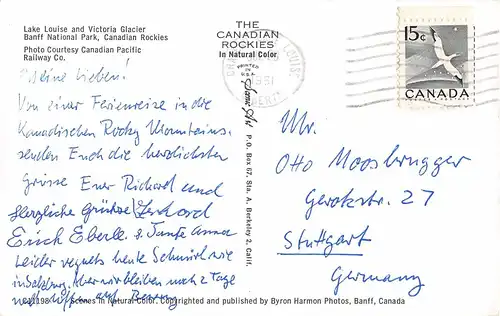 Lake Louise and Victoria Glacier
Banff National Park, Canadian Rockies
Photo Courtesy Canadian Pacific
Railway Co.
THE
CANADIAN
ROCKIES
In Natural Color
PRINTED
IN
U.S.A.
Scenic Art
P.O. Box 67, Sta. A, Berkeley 2, Calif.
LOUISE
1951
15¢
CANADA
Meine Lieben!
Von einer Ferienreise in die
Kanadischen Rocky Mountains
senden Euch die herzlichsten
Grüsse Euer Richard und
Herzliche Grüsse Gerhard
Erich Eberle. & Tante Anna
Leider regnets heute wie
in Salzburg. Aber wir bleiben noch 2 Tage
auf
Mr.
Otto Moosbrugger
Gerokstr. 27
Stuttgart
Germany
Scenes in Natural Color. Copyrighted and published by Byron Harmon Photos, Banff, Canada